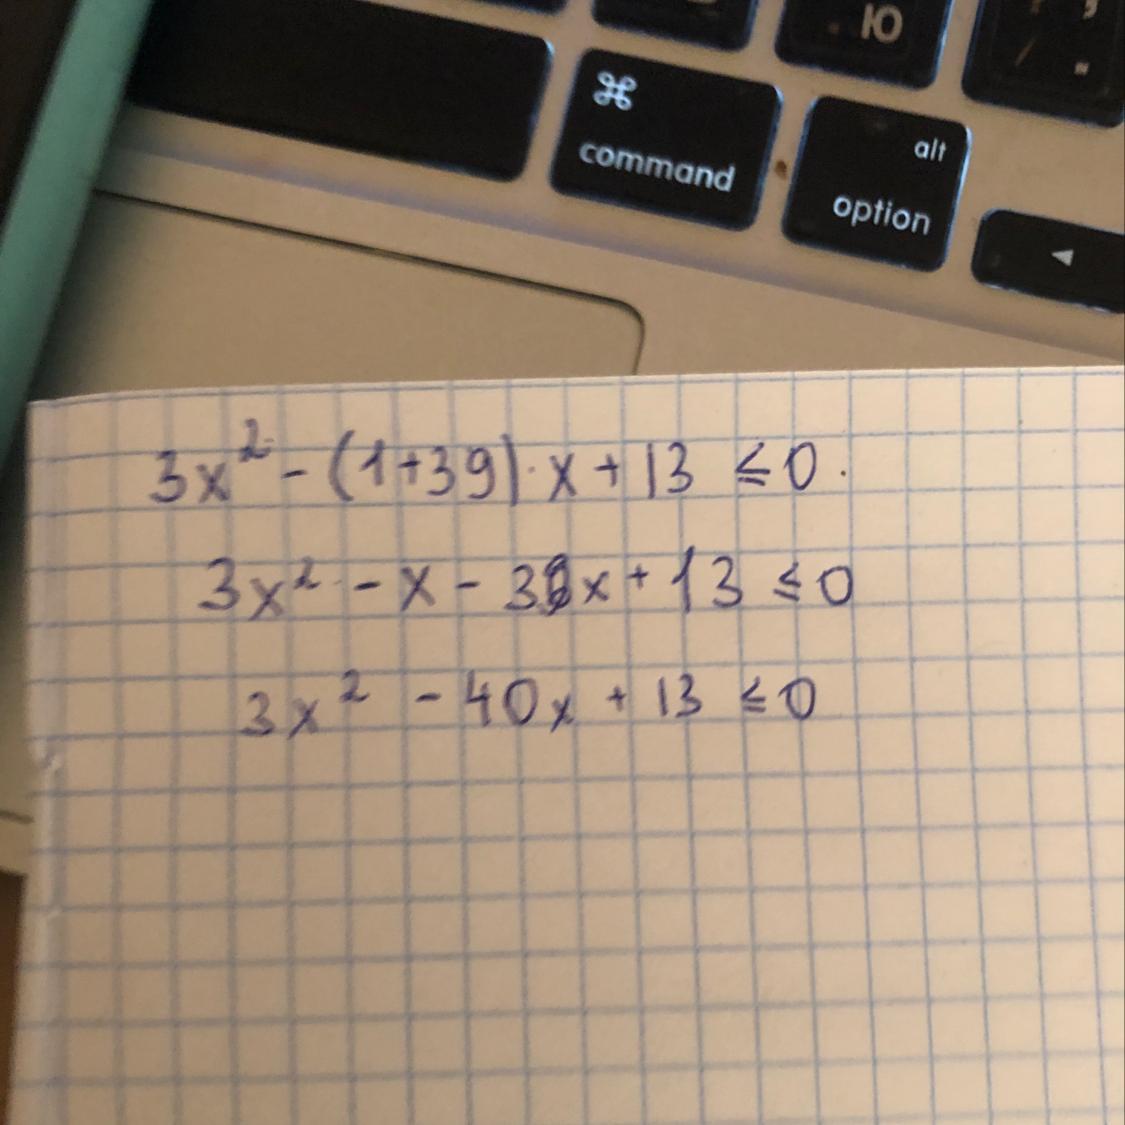 Ю
⌘
command
alt
option
◄
3x² - (1+39)·x + 13 ≤ 0.
3x² - x - 39x + 13 ≤ 0
3x² - 40x + 13 ≤ 0